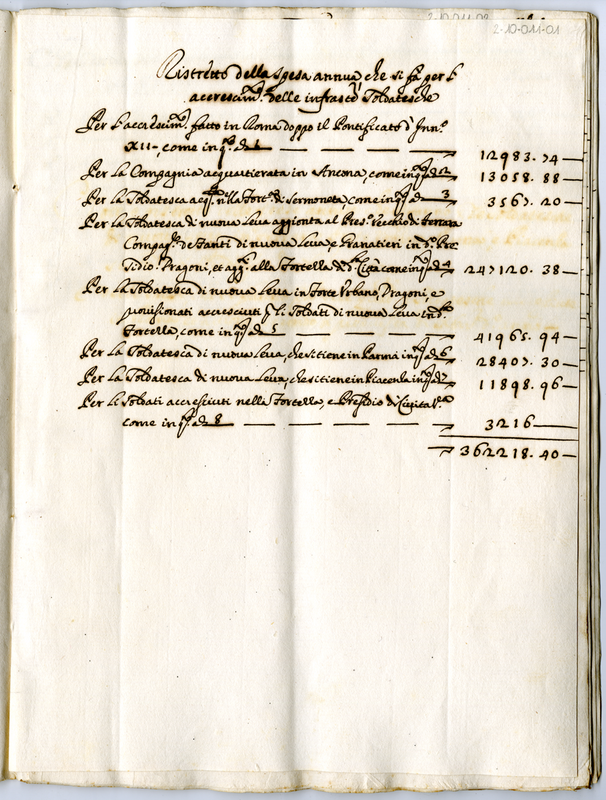 2-10-011-01
Ristretto della Spesa annua che si fà per l'
accrescim.to delle infrascte Soldatesche
Per l'accrescim.to fatto in Roma doppo il Pontificato d'Inn.o
XII-, come in q.o à 1 12983.74
Per La Compagnia acquartierata in Ancona, come in q.o à 2 13058.88
Per La Soldatesca acq.ta n'lla Fort.a di Sermoneta, come in q.o à 3 3567.20
Per La Soldatesca di nuova Leva aggionta al Pres.o Vecchio di Ferrara
Compag.e de Fanti di nuova Leva, e Granatieri in d.o Pre
sidio. Dragoni, et agg.ti alla Fortezza di d.a Città come in q.o à 4 247120.38
Per La Soldatesca di nuova Leva in Forte Urbano, Dragoni, e
provisionati accresciuti p li Soldati di nuova Leva in d.a
Fortezza, come in q.o à 5 41965.94
Per La Soldatesca di nuova Leva, che si tiene in Parma in q.o à 6 28407.30
Per La Soldatesca di nuova Leva, che si tiene in Piacenza in q.o à 7 11898.96
Per Li Soldati accresciuti nella Fortezza, e Presidio di Civita V.a
come in q.o à 8 3216
362218.40